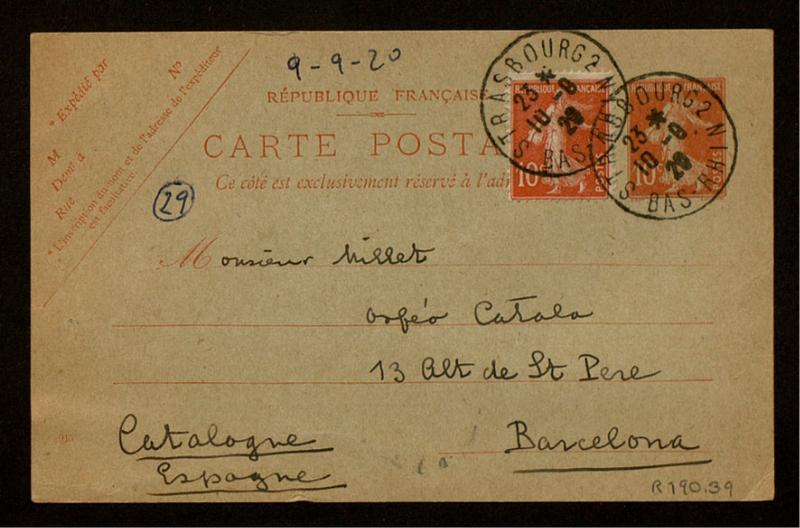 9-9-20
N°
* Expédié par
M
Dem.t à
Rue
* L'inscription du nom et de l'adresse de l'expéditeur
est facultative.
RÉPUBLIQUE FRANÇAISE
CARTE POSTA
Ce côté est exclusivement réservé à l'adr
STRASBOURG 2
23 *
10 -9
20
BAS RHIN
RÉPUBLIQUE FRANÇAISE
10c
STRASBOURG 2
23 *
10 -9
20
BAS RHIN
10c
POSTES
29
Monsieur Millet
Orfeó Catala
13 Alt de St Pere
Catalogne
Barcelona
Espagne
R190.39